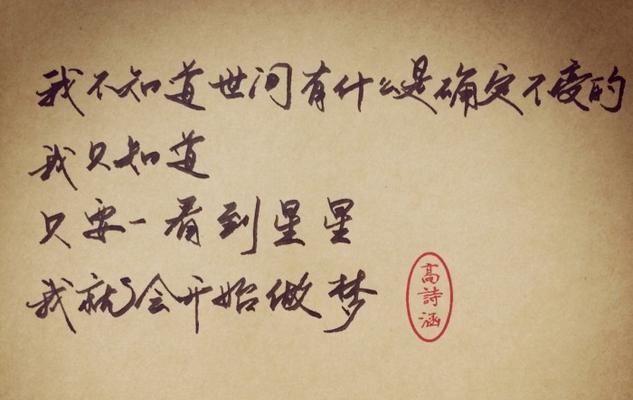 我不知道世间有什么是确定不变的
我只知道
只要一看到星星
我就会开始做梦
高詩涵